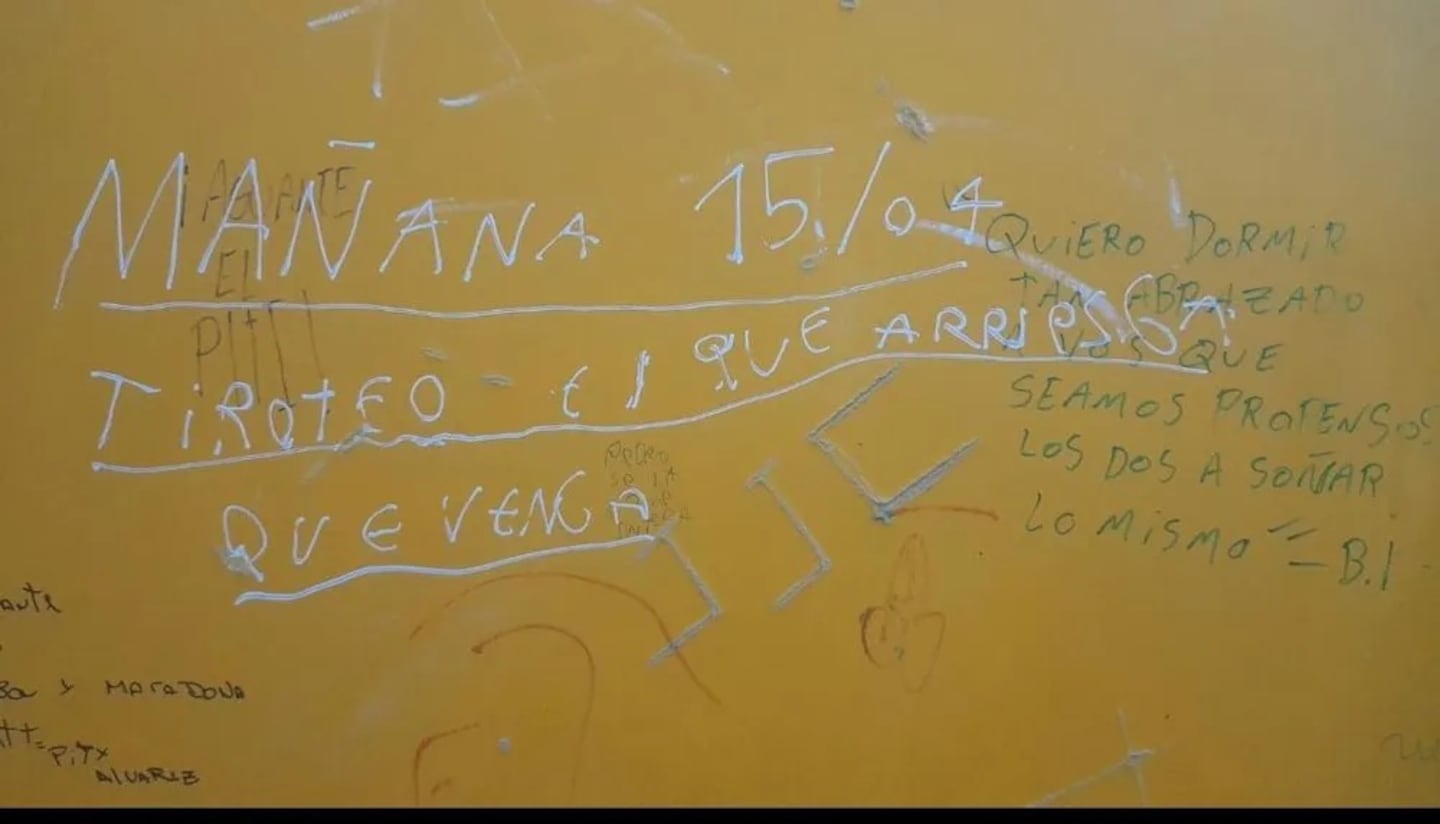 MAÑANA 15/04
TIROTEO EL QUE ARRIESGA
QUE VENGA
AGUANTE
EL
PITI
QUIERO DORMIR
TAN ABRAZADO
A VOS QUE
SEAMOS PROPENSOS
LOS DOS A SOÑAR
LO MISMO" - B.I
PEDRO
SE LA
Y MARADONA
PITY
ALVAREZ